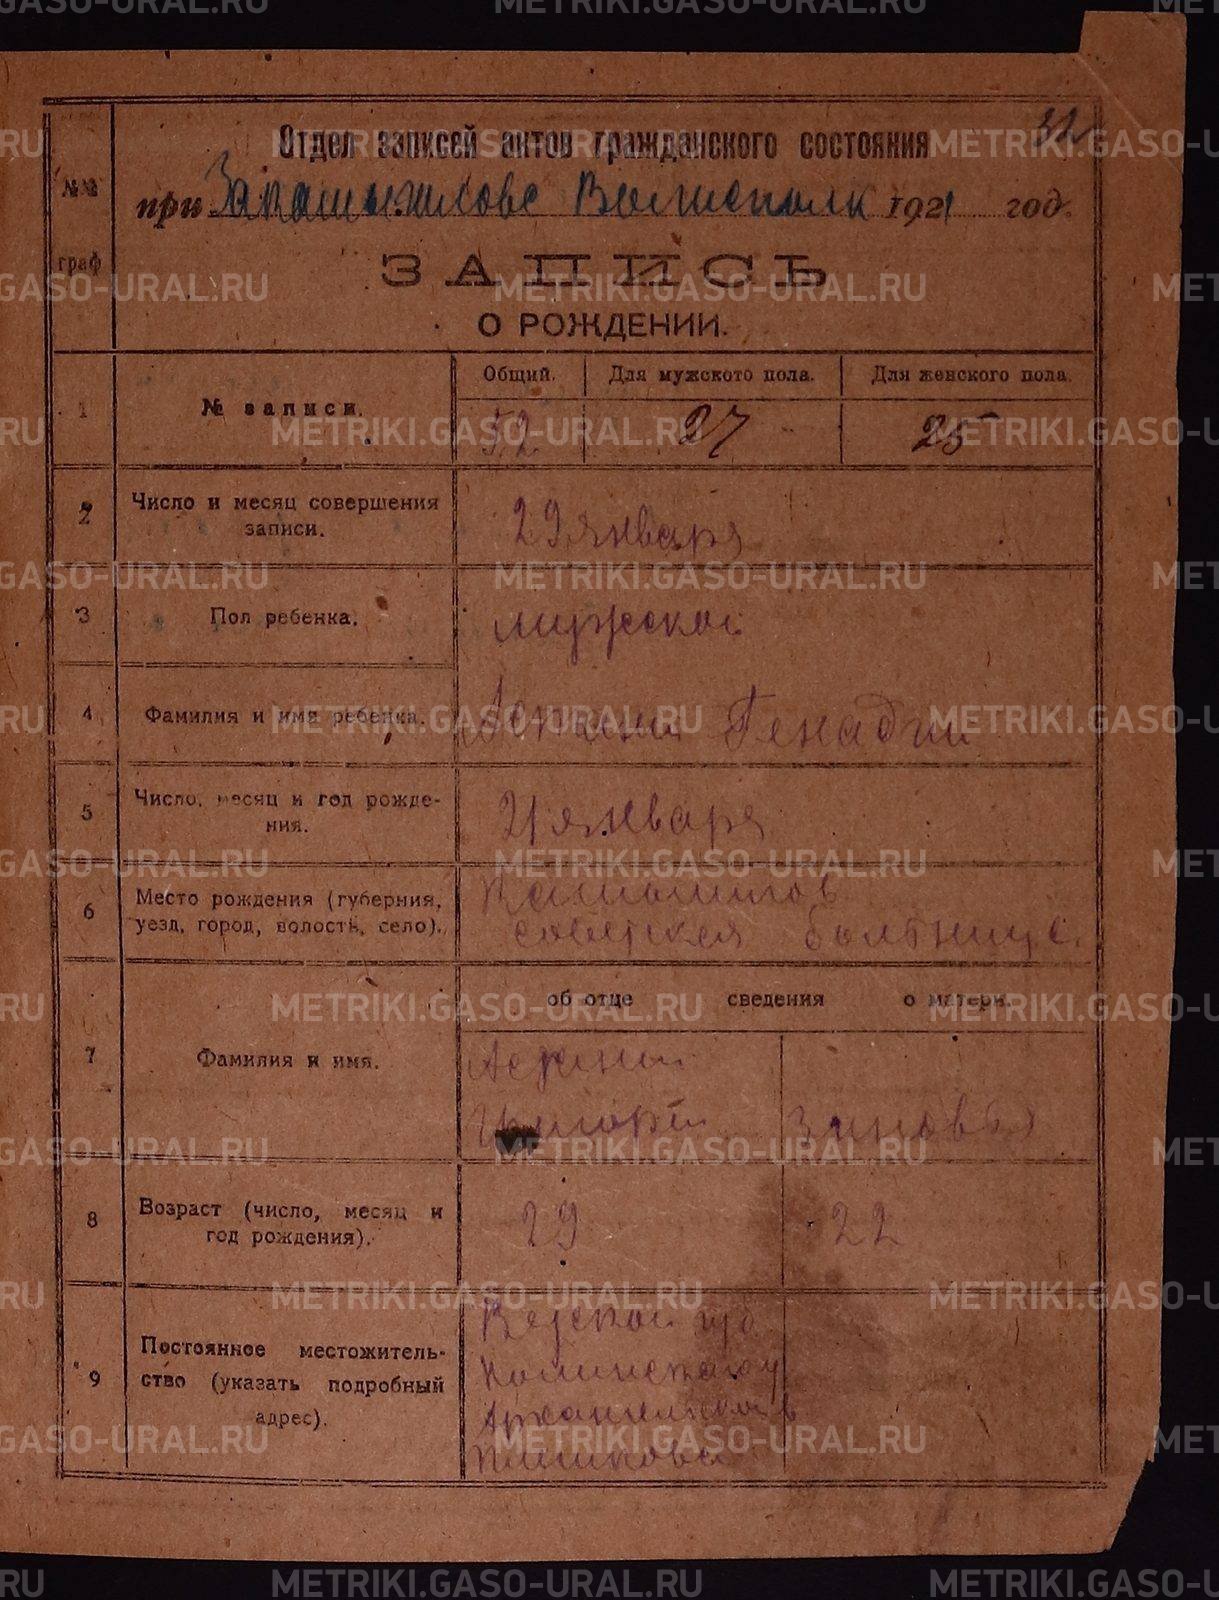 32
Отдел записей актов гражданского состояния
№№ граф
при Волисполк 1921 год.
ЗАПИСЬ
О РОЖДЕНИИ.
1 № записи.
Общий. Для мужского пола. Для женского пола.
52 27 25
2 Число и месяц совершения
записи.
29 января
3 Пол ребенка.
мужской
4 Фамилия и имя ребенка.
Генадий
5 Число, месяц и год рожде-
ния.
21 января
6 Место рождения (губерния,
уезд, город, волость, село).
советская больница
7 Фамилия и имя.
об отце сведения о матери.
Зиновья
8 Возраст (число, месяц и
год рождения).
29 22
9 Постоянное местожитель-
ство (указать подробный
адрес).
губ
METRIKI.GASO-URAL.RU